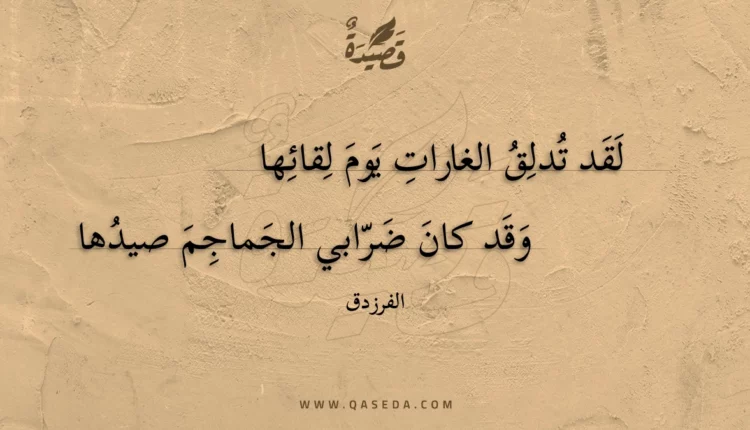 قَصِيدَةٌ
لَقَد تُدلِقُ الغاراتِ يَومَ لِقائِها
وَقَد كانَ ضَرّابي الجَماجِمَ صيدُها
الفرزدق
WWW.QASEDA.COM